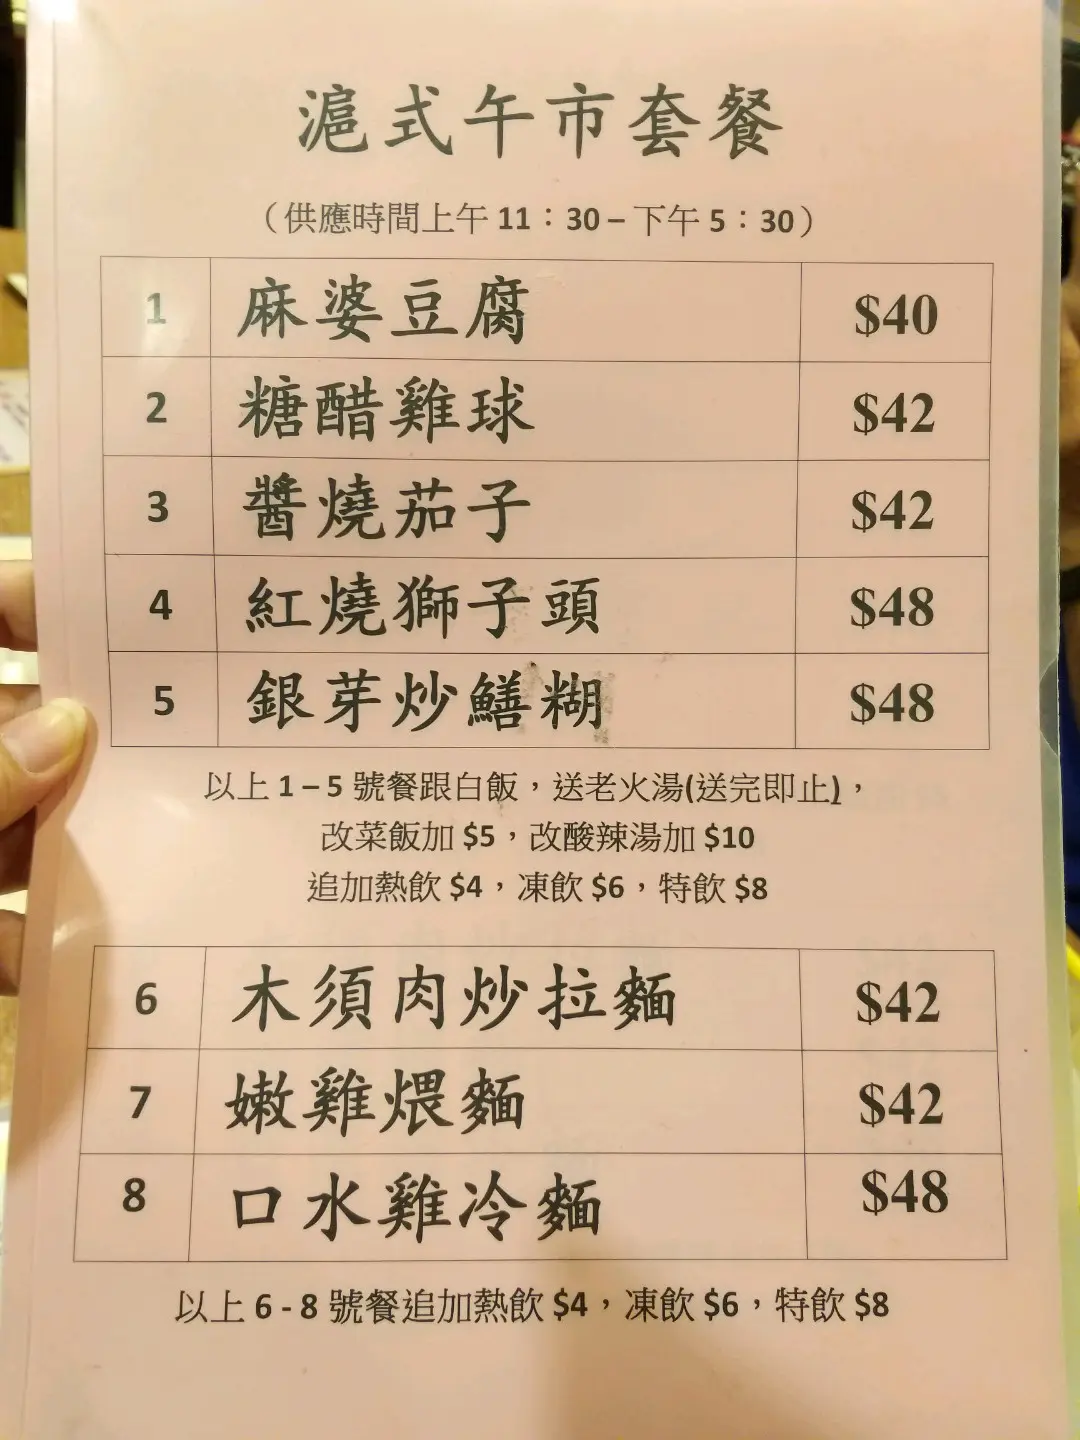 滬式午市套餐
（供應時間上午 11：30 – 下午 5：30）
1 麻婆豆腐 $40
2 糖醋雞球 $42
3 醬燒茄子 $42
4 紅燒獅子頭 $48
5 銀芽炒鱔糊 $48
以上 1 – 5 號餐跟白飯，送老火湯(送完即止)，
改菜飯加 $5，改酸辣湯加 $10
追加熱飲 $4，凍飲 $6，特飲 $8
6 木須肉炒拉麵 $42
7 嫩雞煨麵 $42
8 口水雞冷麵 $48
以上 6 - 8 號餐追加熱飲 $4，凍飲 $6，特飲 $8